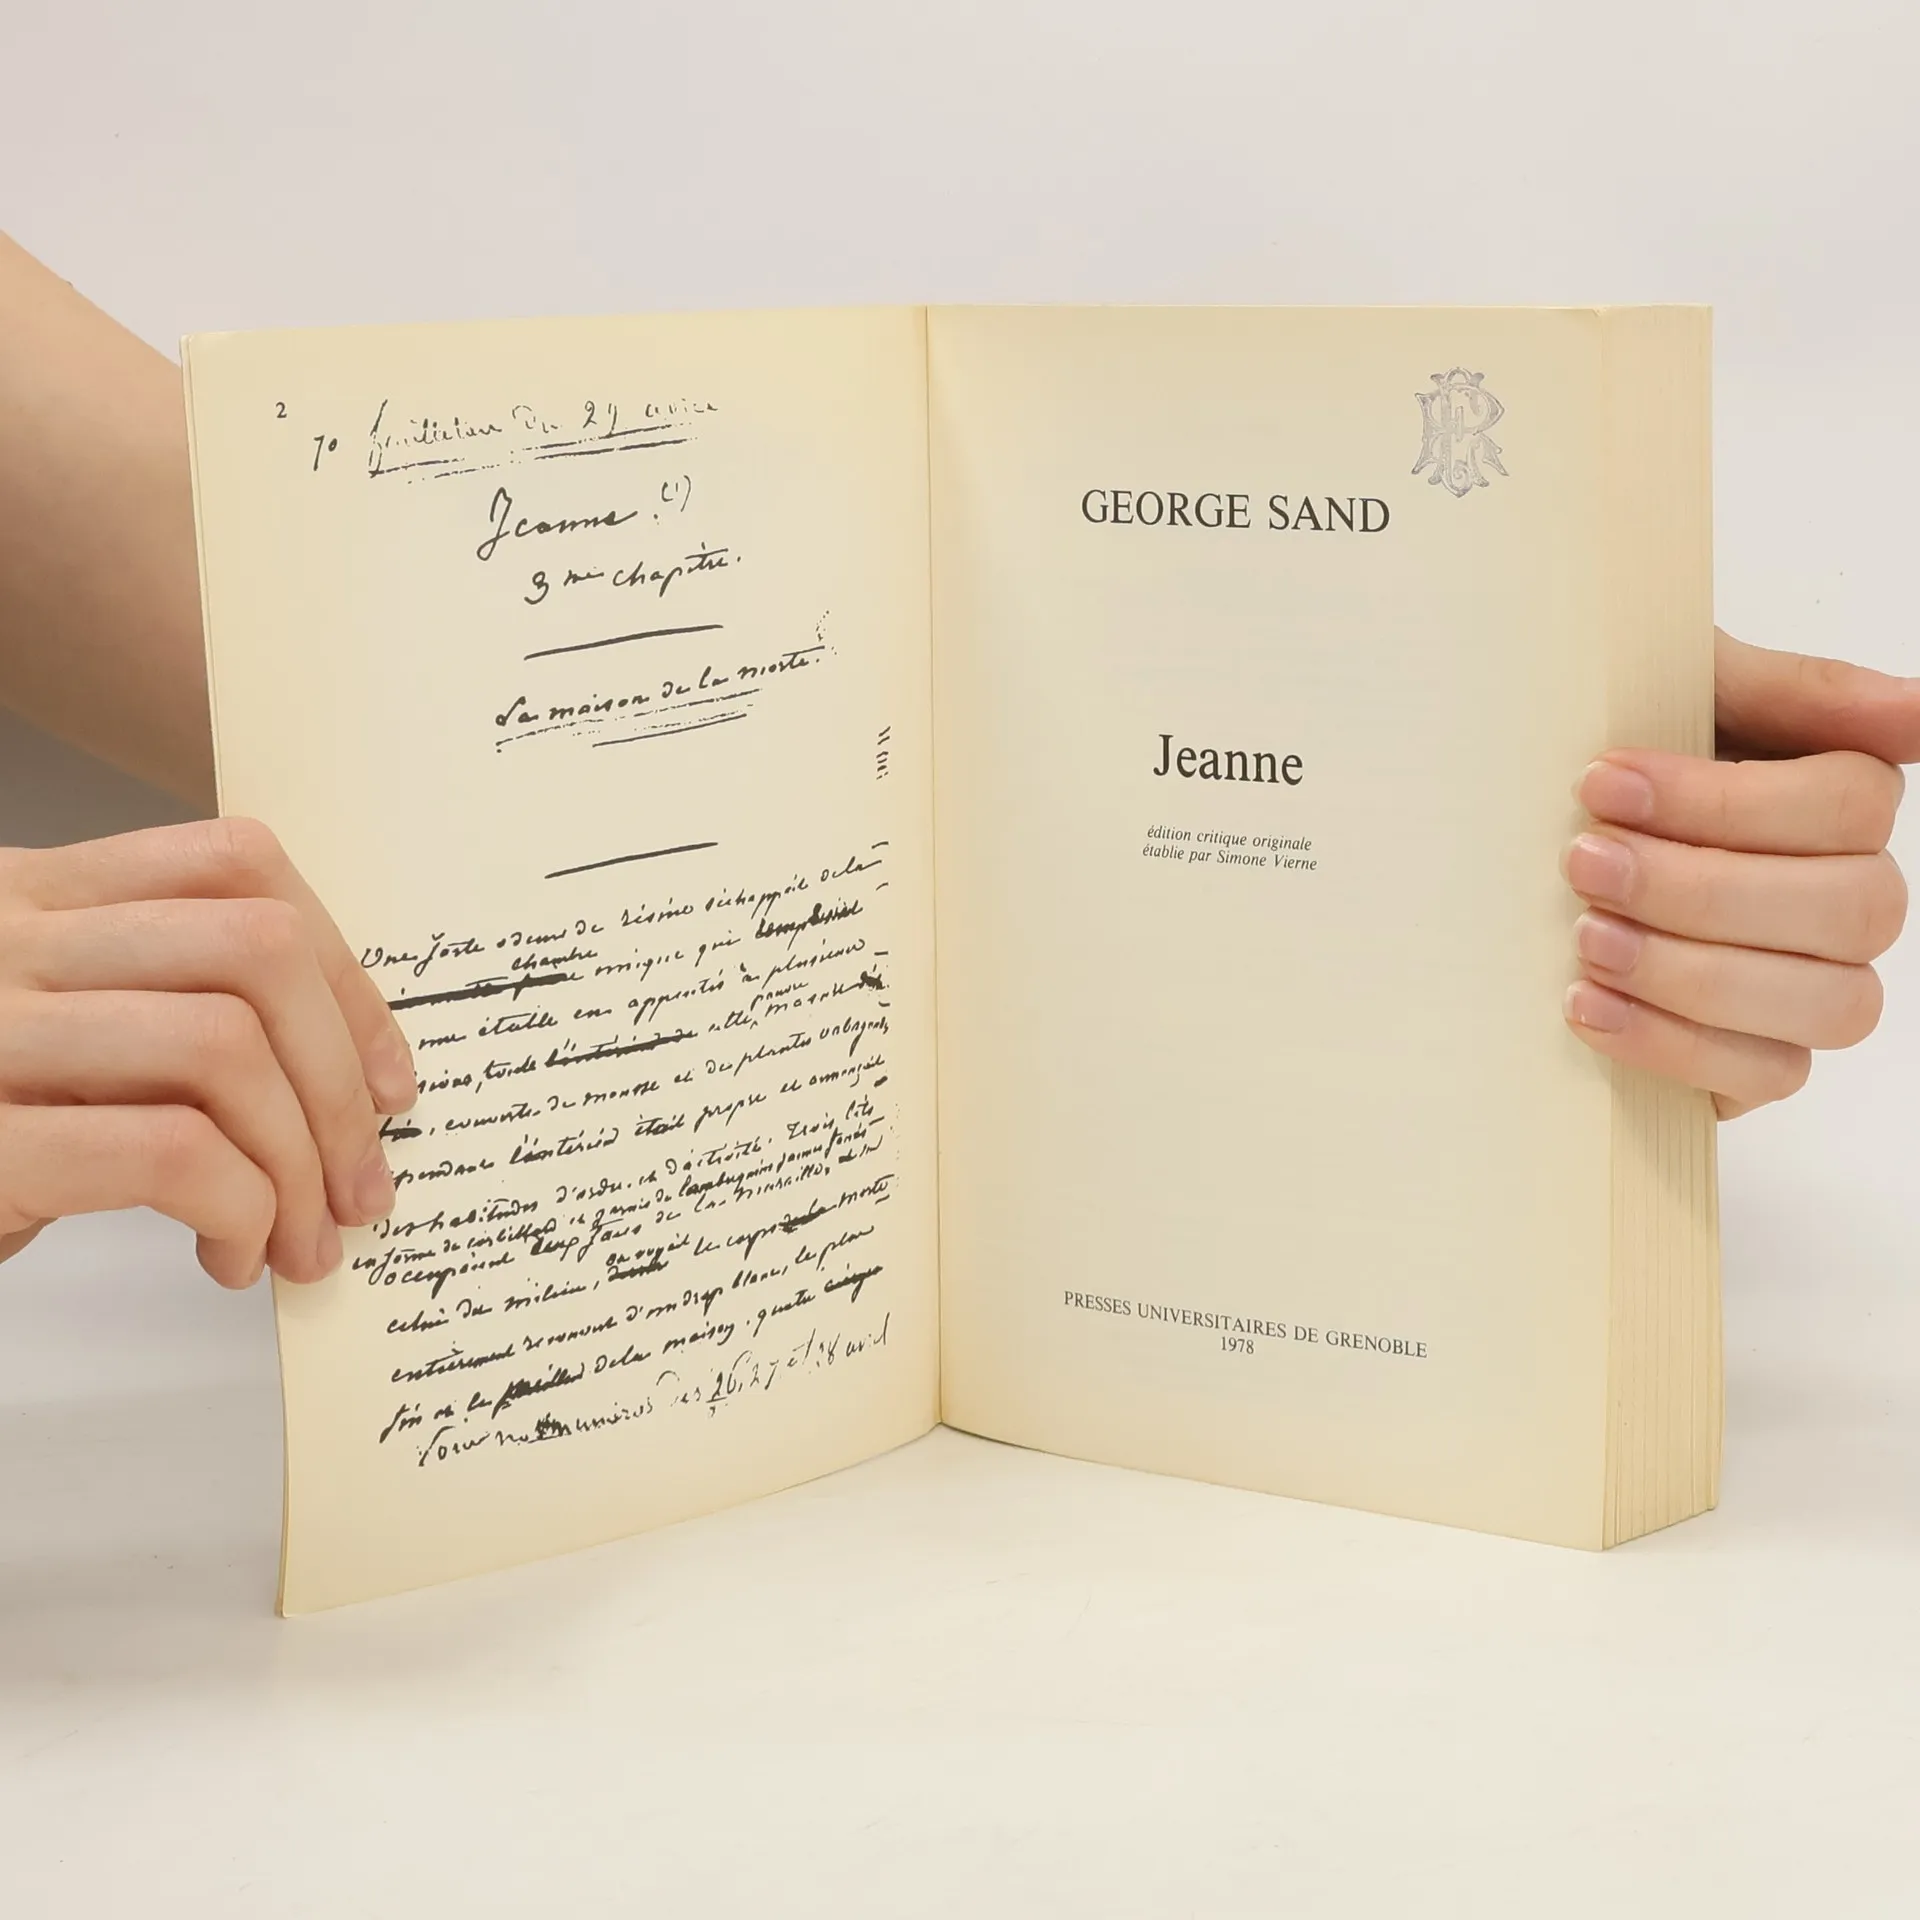 2
70 feuilleton du 29 avril
Jeanne. (1)
3me chapitre.
La maison de la morte.
Une forte odeur de résine s'échappait de la
chambre
unique qui
une étable en appentis à plusieurs
pauvre
toute l'intérieur de cette masure
, couverte de mousse et de plantes
l'intérieur était propre et annonçait
des habitudes d'ordre et d'activité. Trois lits
en forme de corbillard et garnis de lambrequins jaunes fanés
occupaient deux faces de la muraille, et sur
on voyait
celui du milieu, le corps de la morte
entièrement recouvert d'un drap blanc, le plus
fin et le meilleur de la maison. quatre cierges
Voir nos numéros des 26, 27 et 28 avril
GEORGE SAND
Jeanne
édition critique originale
établie par Simone Vierne
PRESSES UNIVERSITAIRES DE GRENOBLE
1978